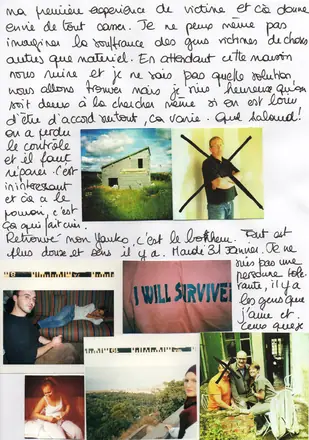 ma première expérience de victime et ça donne
envie de tout casser. Je ne peux même pas
imaginer la souffrance des gens victimes de choses
autres que matériel. En attendant cette maison
nous ruine et je ne sais pas quelle solution
nous allons trouver mais je suis heureuse qu'on
soit deux à la chercher même si on est loin
d'être d'accord sur tout, ça varie. Quel salaud!
on a perdu
le contrôle
et il faut
réparer. C'est
intéressant
et ça a le
pouvoir, c'est
ça qui fait
Retrouver mon Yanko, c'est le bonheur. Tout est
plus doux et sens il y a. Mardi 31 Janvier. Je ne
suis pas une
personne tolé-
rante, il y a
les gens que
j'aime et
ceux que je
I WILL SURVIVE!